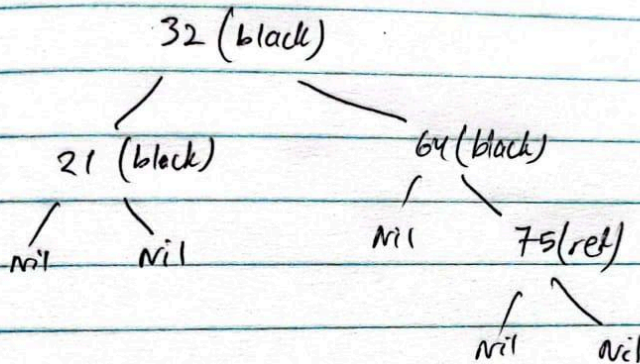 32 (black)
21 (black) 64 (black)
Nil Nil Nil 75(ret)
Nil Nil